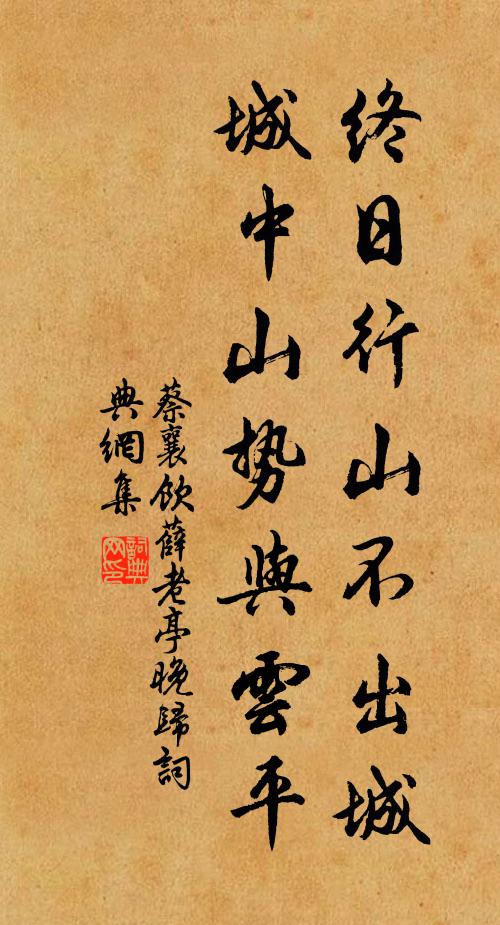 终日行山不出城
城中山势与雲平
蔡襄飲薛老亭晚歸詞
典網集
詞典网印